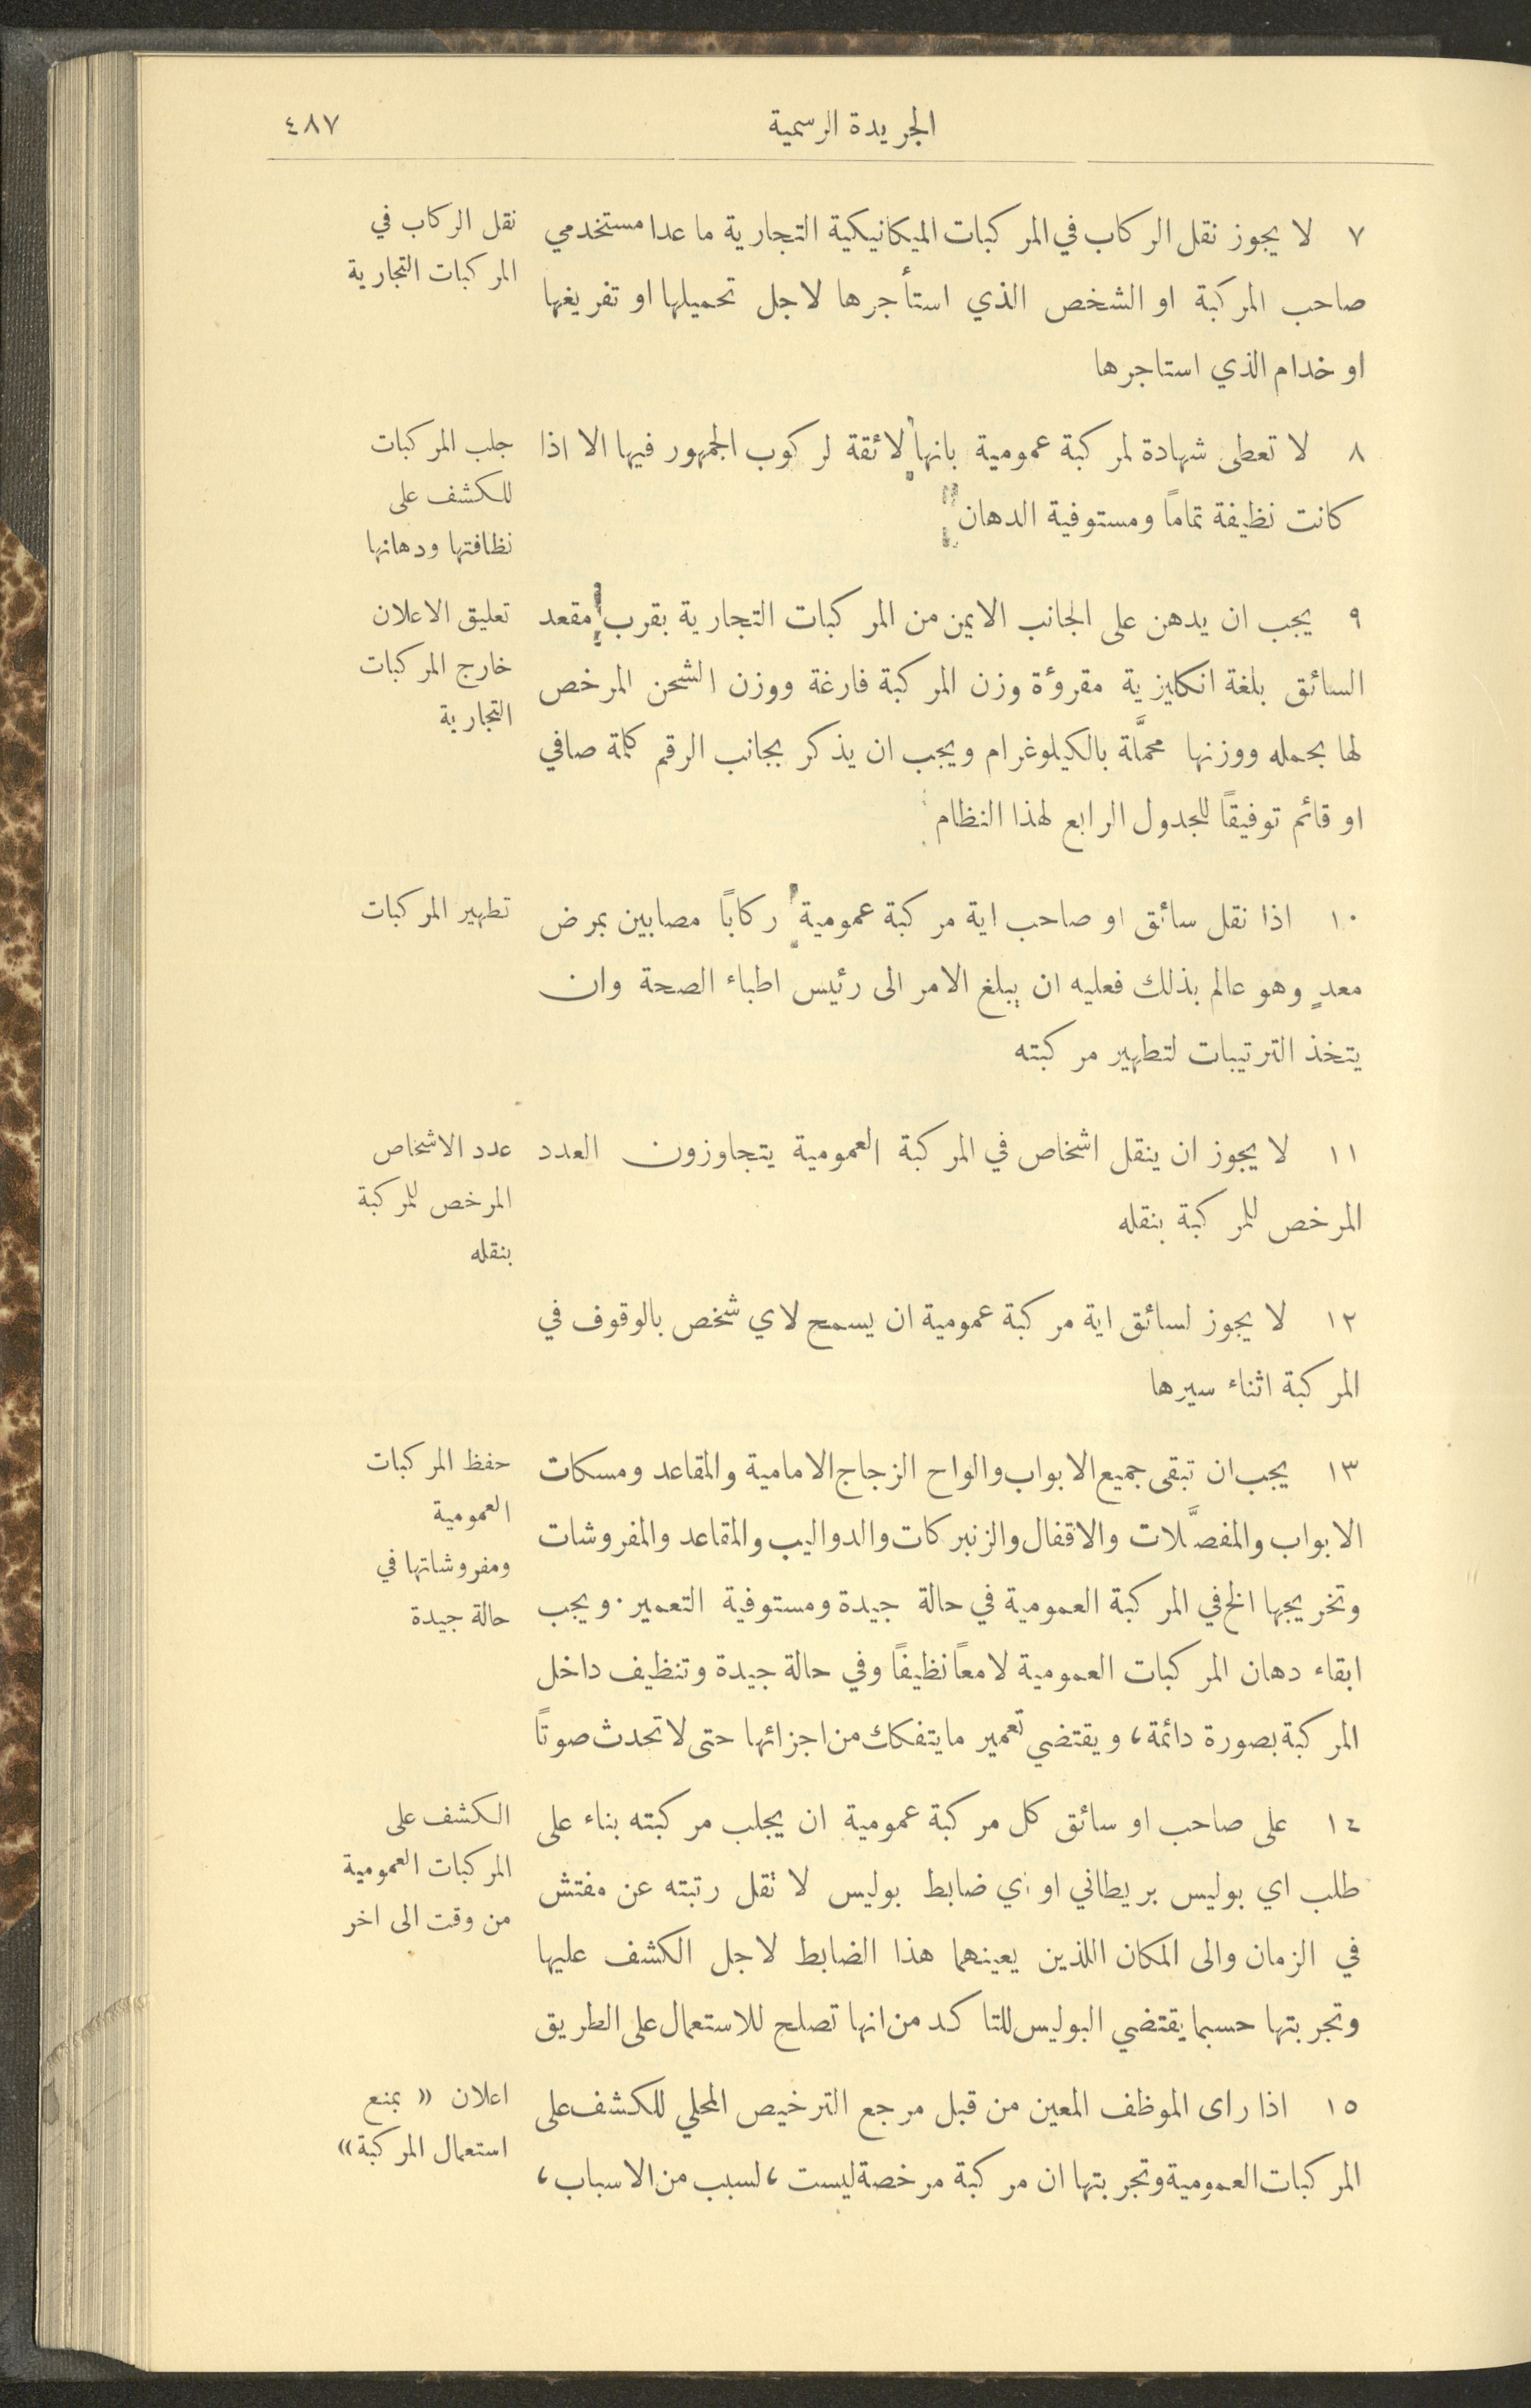 الجريدة الرسمية
٤٨٧
٧ لا يجوز نقل الركاب في المركبات الميكانيكية التجارية ما عدا مستخدمي
صاحب المركبة او الشخص الذي استأجرها لاجل تحميلها او تفريغها
او خدام الذي استاجرها
نقل الركاب في
المركبات التجارية
٨ لا تعطى شهادة لمركبة عمومية بانها لائقة لركوب الجمهور فيها الا اذا
كانت نظيفة تماماً ومستوفية الدهان
جلب المركبات
للكشف على
نظافتها ودهانها
٩ يجب ان يدهن على الجانب الايمن من المركبات التجارية بقرب مقعد
السائق بلغة انكليزية مقروٴة وزن المركبة فارغة ووزن الشحن المرخص
لها بحمله ووزنها محمَّلة بالكيلوغرام ويجب ان يذكر بجانب الرقم كلمة صافي
او قائم توفيقاً للجدول الرابع لهذا النظام
تعليق الاعلان
خارج المركبات
التجارية
١٠ اذا نقل سائق او صاحب اية مركبة عمومية ركاباً مصابين بمرض
معدٍ وهو عالم بذلك فعليه ان يبلغ الامر الى رئيس اطباء الصحة وان
يتخذ الترتيبات لتطهير مركبته
تطهير المركبات
١١ لا يجوز ان ينقل اشخاص في المركبة العمومية يتجاوزون العدد
المرخص للمركبة بنقله
عدد الاشخاص
المرخص للمركبة
بنقله
١٢ لا يجوز لسائق اية مركبة عمومية ان يسمح لاي شخص بالوقوف في
المركبة اثناء سيرها
١٣ يجب ان تبقى جميع الابواب والواح الزجاج الامامية والمقاعد ومسكات
الابواب والمفصَّلات والاقفال والزنبركات والدواليب والمقاعد والمفروشات
وتخريجها الخ في المركبة العمومية في حالة جيدة ومستوفية التعمير. ويجب
ابقاء دهان المركبات العمومية لامعاً نظيفاً وفي حالة جيدة وتنظيف داخل
المركبة بصورة دائمة، ويقتضي تعمير ما يتفكك من اجزائها حتى لا تحدث صوتاً
حفظ المركبات
العمومية
ومفروشاتها في
حالة جيدة
١٤ على صاحب او سائق كل مركبة عمومية ان يجلب مركبته بناء على
طلب اي بوليس بريطاني او اي ضابط بوليس لا تقل رتبته عن مفتش
في الزمان والى المكان اللذين يعينهما هذا الضابط لاجل الكشف عليها
وتجربتها حسبما يقتضي البوليس للتاكد من انها تصلح للاستعمال على الطريق
الكشف على
المركبات العمومية
من وقت الى اخر
١٥ اذا راى الموظف المعين من قبل مرجع الترخيص المحلي للكشف على
المركبات العمومية وتجربتها ان مركبة مرخصة ليست، لسبب من الاسباب،
اعلان « بمنع
استعمال المركبة»